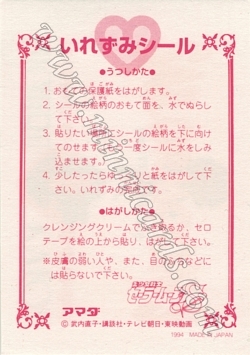 いれずみシール
●うつしかた●
1. おもての保護紙をはがします。
2. シールの絵柄のおもて面を、水でぬらし
て下さい。
3. 貼りたい場所にシールの絵柄を下に向け
てのせます。もう一度シールに水をしみ
込ませます。
4. 少したったらゆっくりと紙をはがして下さ
い。いれずみの完成です。
●はがしかた●
クレンジングクリームでふきとるか、セロ
テープを絵の上から貼り、はがして下さい。
※皮膚の弱い人や、また、目のふちなどに
は貼らないで下さい。
アマダ
美少女戦士
セーラームーンS
© 武内直子・講談社・テレビ朝日・東映動画
1994 MADE IN JAPAN